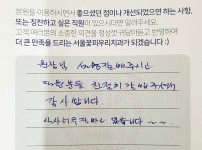 본원을 이용하시면서 좋으셨던 점이나 개선되었으면 하는 사항,
또는 칭찬하고 싶은 직원이 있으시다면 알려주세요.
고객 여러분의 소중한 의견을 정성껏 귀담아듣고 반영하여
더 큰 만족을 드리는 서울꽃피우리치과가 되겠습니다 :)
원장님 해주시고
다른분들 친절히 해주셔서
감사합니다.
없습니다 ~~